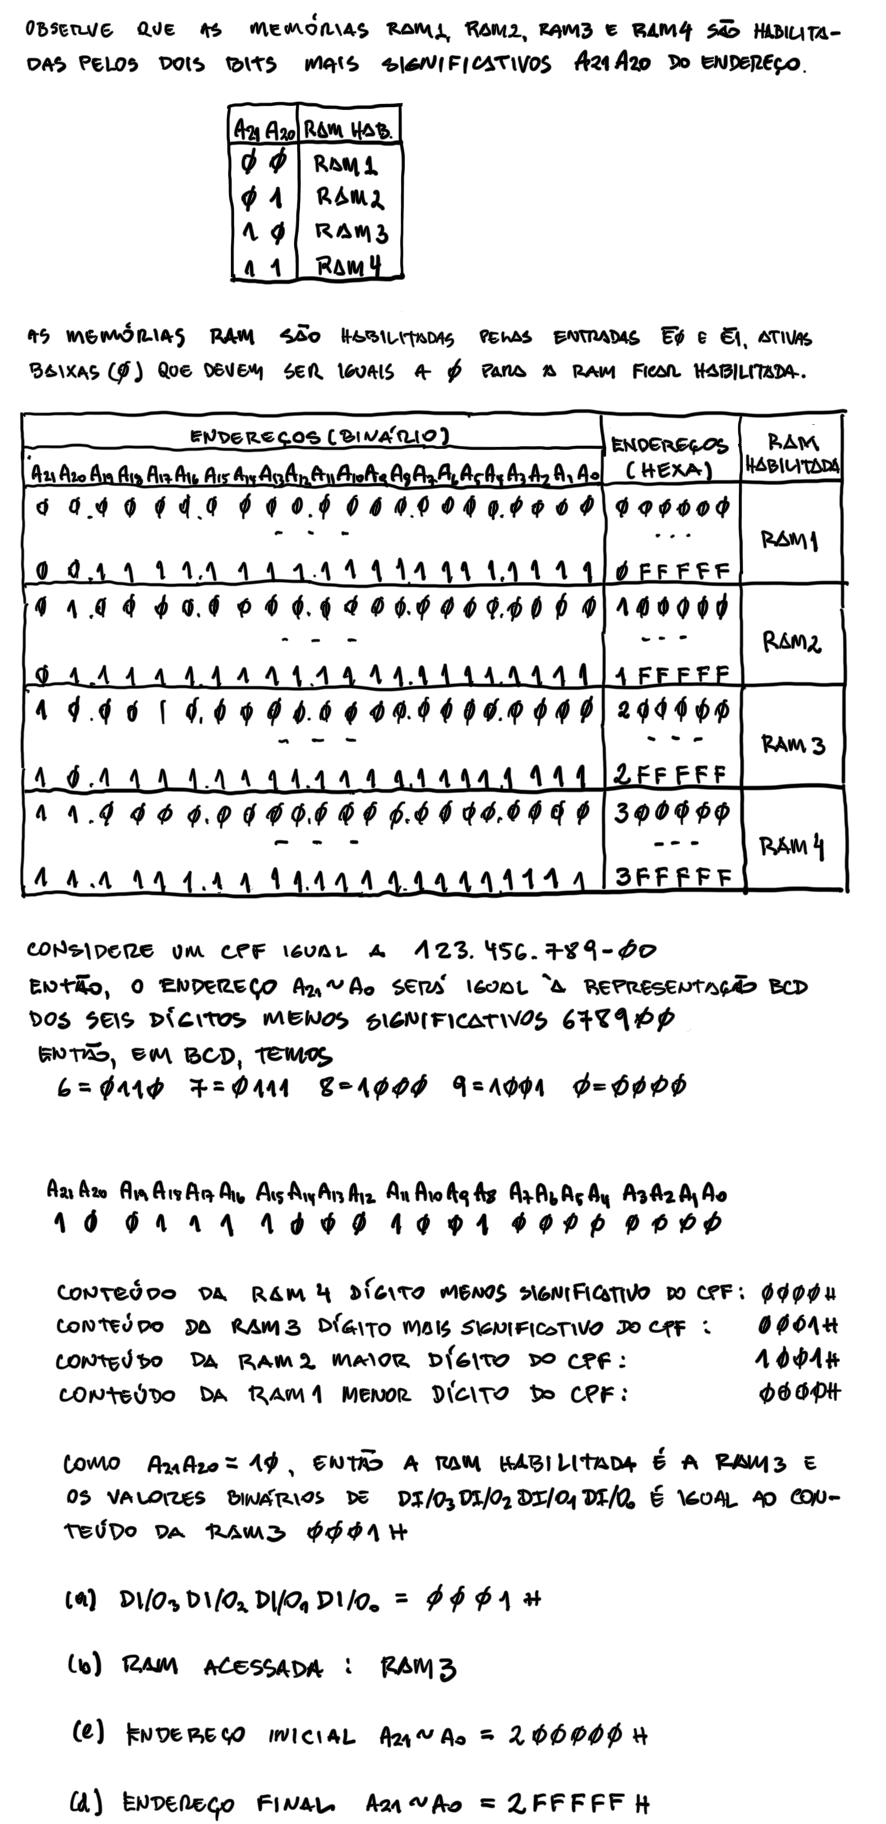 OBSERVE QUE AS MEMÓRIAS RAM1, RAM2, RAM3 E RAM4 SÃO HABILITA-
DAS PELOS DOIS BITS MAIS SIGNIFICATIVOS A21 A20 DO ENDEREÇO.
A21 A20 RAM HAB.
0 0 RAM1
0 1 RAM2
1 0 RAM3
1 1 RAM4
AS MEMÓRIAS RAM SÃO HABILITADAS PELAS ENTRADAS E̅0 E E̅1, ATIVAS
BAIXAS (0) QUE DEVEM SER IGUAIS A 0 PARA A RAM FICAR HABILITADA.
ENDEREÇOS (BINÁRIO) ENDEREÇOS (HEXA) RAM HABILITADA
A21 A20 A19 A18 A17 A16 A15 A14 A13 A12 A11 A10 A9 A8 A7 A6 A5 A4 A3 A2 A1 A0
0 0.0 0 0 0.0 0 0 0.0 0 0 0.0 0 0 0.0 0 0 0 000000
- - - ... RAM1
0 0.1 1 1 1.1 1 1 1.1 1 1 1.1 1 1 1.1 1 1 1 0FFFFF
0 1.0 0 0 0.0 0 0 0.0 0 0 0.0 0 0 0.0 0 0 0 100000
- - - - - - RAM2
0 1.1 1 1 1.1 1 1 1.1 1 1 1.1 1 1 1.1 1 1 1 1FFFFF
1 0.0 0 1 0.0 0 0 0.0 0 0 0.0 0 0 0.0 0 0 0 200000
- - - - - - RAM3
1 0.1 1 1 1.1 1 1 1.1 1 1 1.1 1 1 1.1 1 1 1 2FFFFF
1 1.0 0 0 0.0 0 0 0.0 0 0 0.0 0 0 0.0 0 0 0 300000
- - - - - - RAM4
1 1.1 1 1 1.1 1 1 1.1 1 1 1.1 1 1 1.1 1 1 1 3FFFFF
CONSIDERE UM CPF IGUAL A 123.456.789-00
ENTÃO, O ENDEREÇO A21 ~ A0 SERÁ IGUAL À REPRESENTAÇÃO BCD
DOS SEIS DÍGITOS MENOS SIGNIFICATIVOS 678900
ENTÃO, EM BCD, TEMOS
6=0110 7=0111 8=1000 9=1001 0=0000
A21 A20 A19 A18 A17 A16 A15 A14 A13 A12 A11 A10 A9 A8 A7 A6 A5 A4 A3 A2 A1 A0
1 0 0 1 1 1 1 0 0 0 1 0 0 1 0 0 0 0 0 0 0 0
CONTEÚDO DA RAM 4 DÍGITO MENOS SIGNIFICATIVO DO CPF: 0000H
CONTEÚDO DA RAM 3 DÍGITO MAIS SIGNIFICATIVO DO CPF: 0001H
CONTEÚDO DA RAM 2 MAIOR DÍGITO DO CPF: 1001H
CONTEÚDO DA RAM 1 MENOR DÍGITO DO CPF: 0000H
COMO A21 A20 = 10, ENTÃO A RAM HABILITADA É A RAM3 E
OS VALORES BINÁRIOS DE DI/O3 DI/O2 DI/O1 DI/O0 É IGUAL AO CON-
TEÚDO DA RAM3 0001 H
(a) DI/O3 DI/O2 DI/O1 DI/O0 = 0001 H
(b) RAM ACESSADA : RAM3
(c) ENDEREÇO INICIAL A21 ~ A0 = 200000 H
(d) ENDEREÇO FINAL A21 ~ A0 = 2FFFFF H